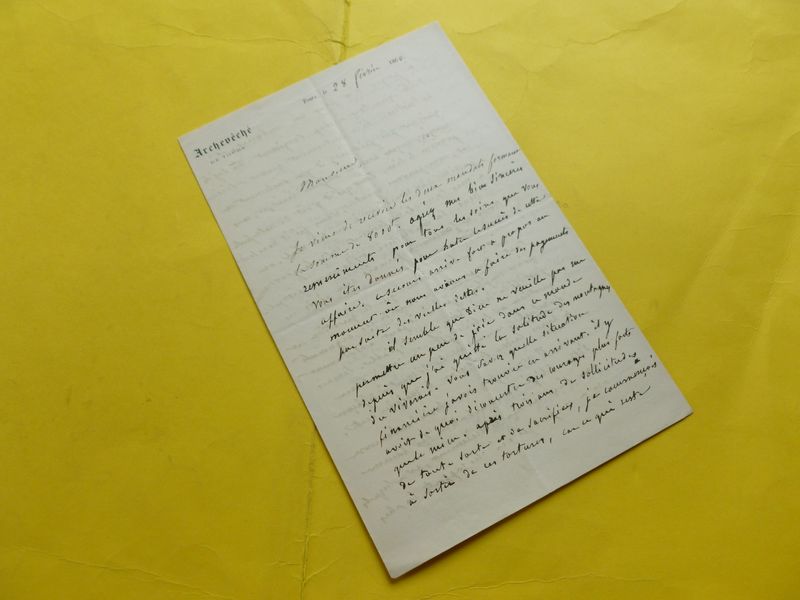 Archevêché
28 février
Monsieur
Je viens de recevoir les deux mandats formant
la somme de agréez mes bien sincères
remerciements pour tous les soins que vous
vous êtes donnés pour hâter le succès de cette
affaire. ce secours arrive fort à propos au
moment où nous avions à faire des payements
par suite des vieilles dettes.
il semble que Dieu ne veuille pas me
permettre un peu de joie dans ce monde
depuis que j'ai quitté la solitude des montagnes
du vivarais. vous savez quelle situation
financière j'avais trouvée en arrivant. il y
avait de quoi déconcerter des courages plus forts
que le mien. après trois ans de sollicitudes
de toute sorte et de sacrifices, je commençais
à sortir de ces tortures, car ce qui reste